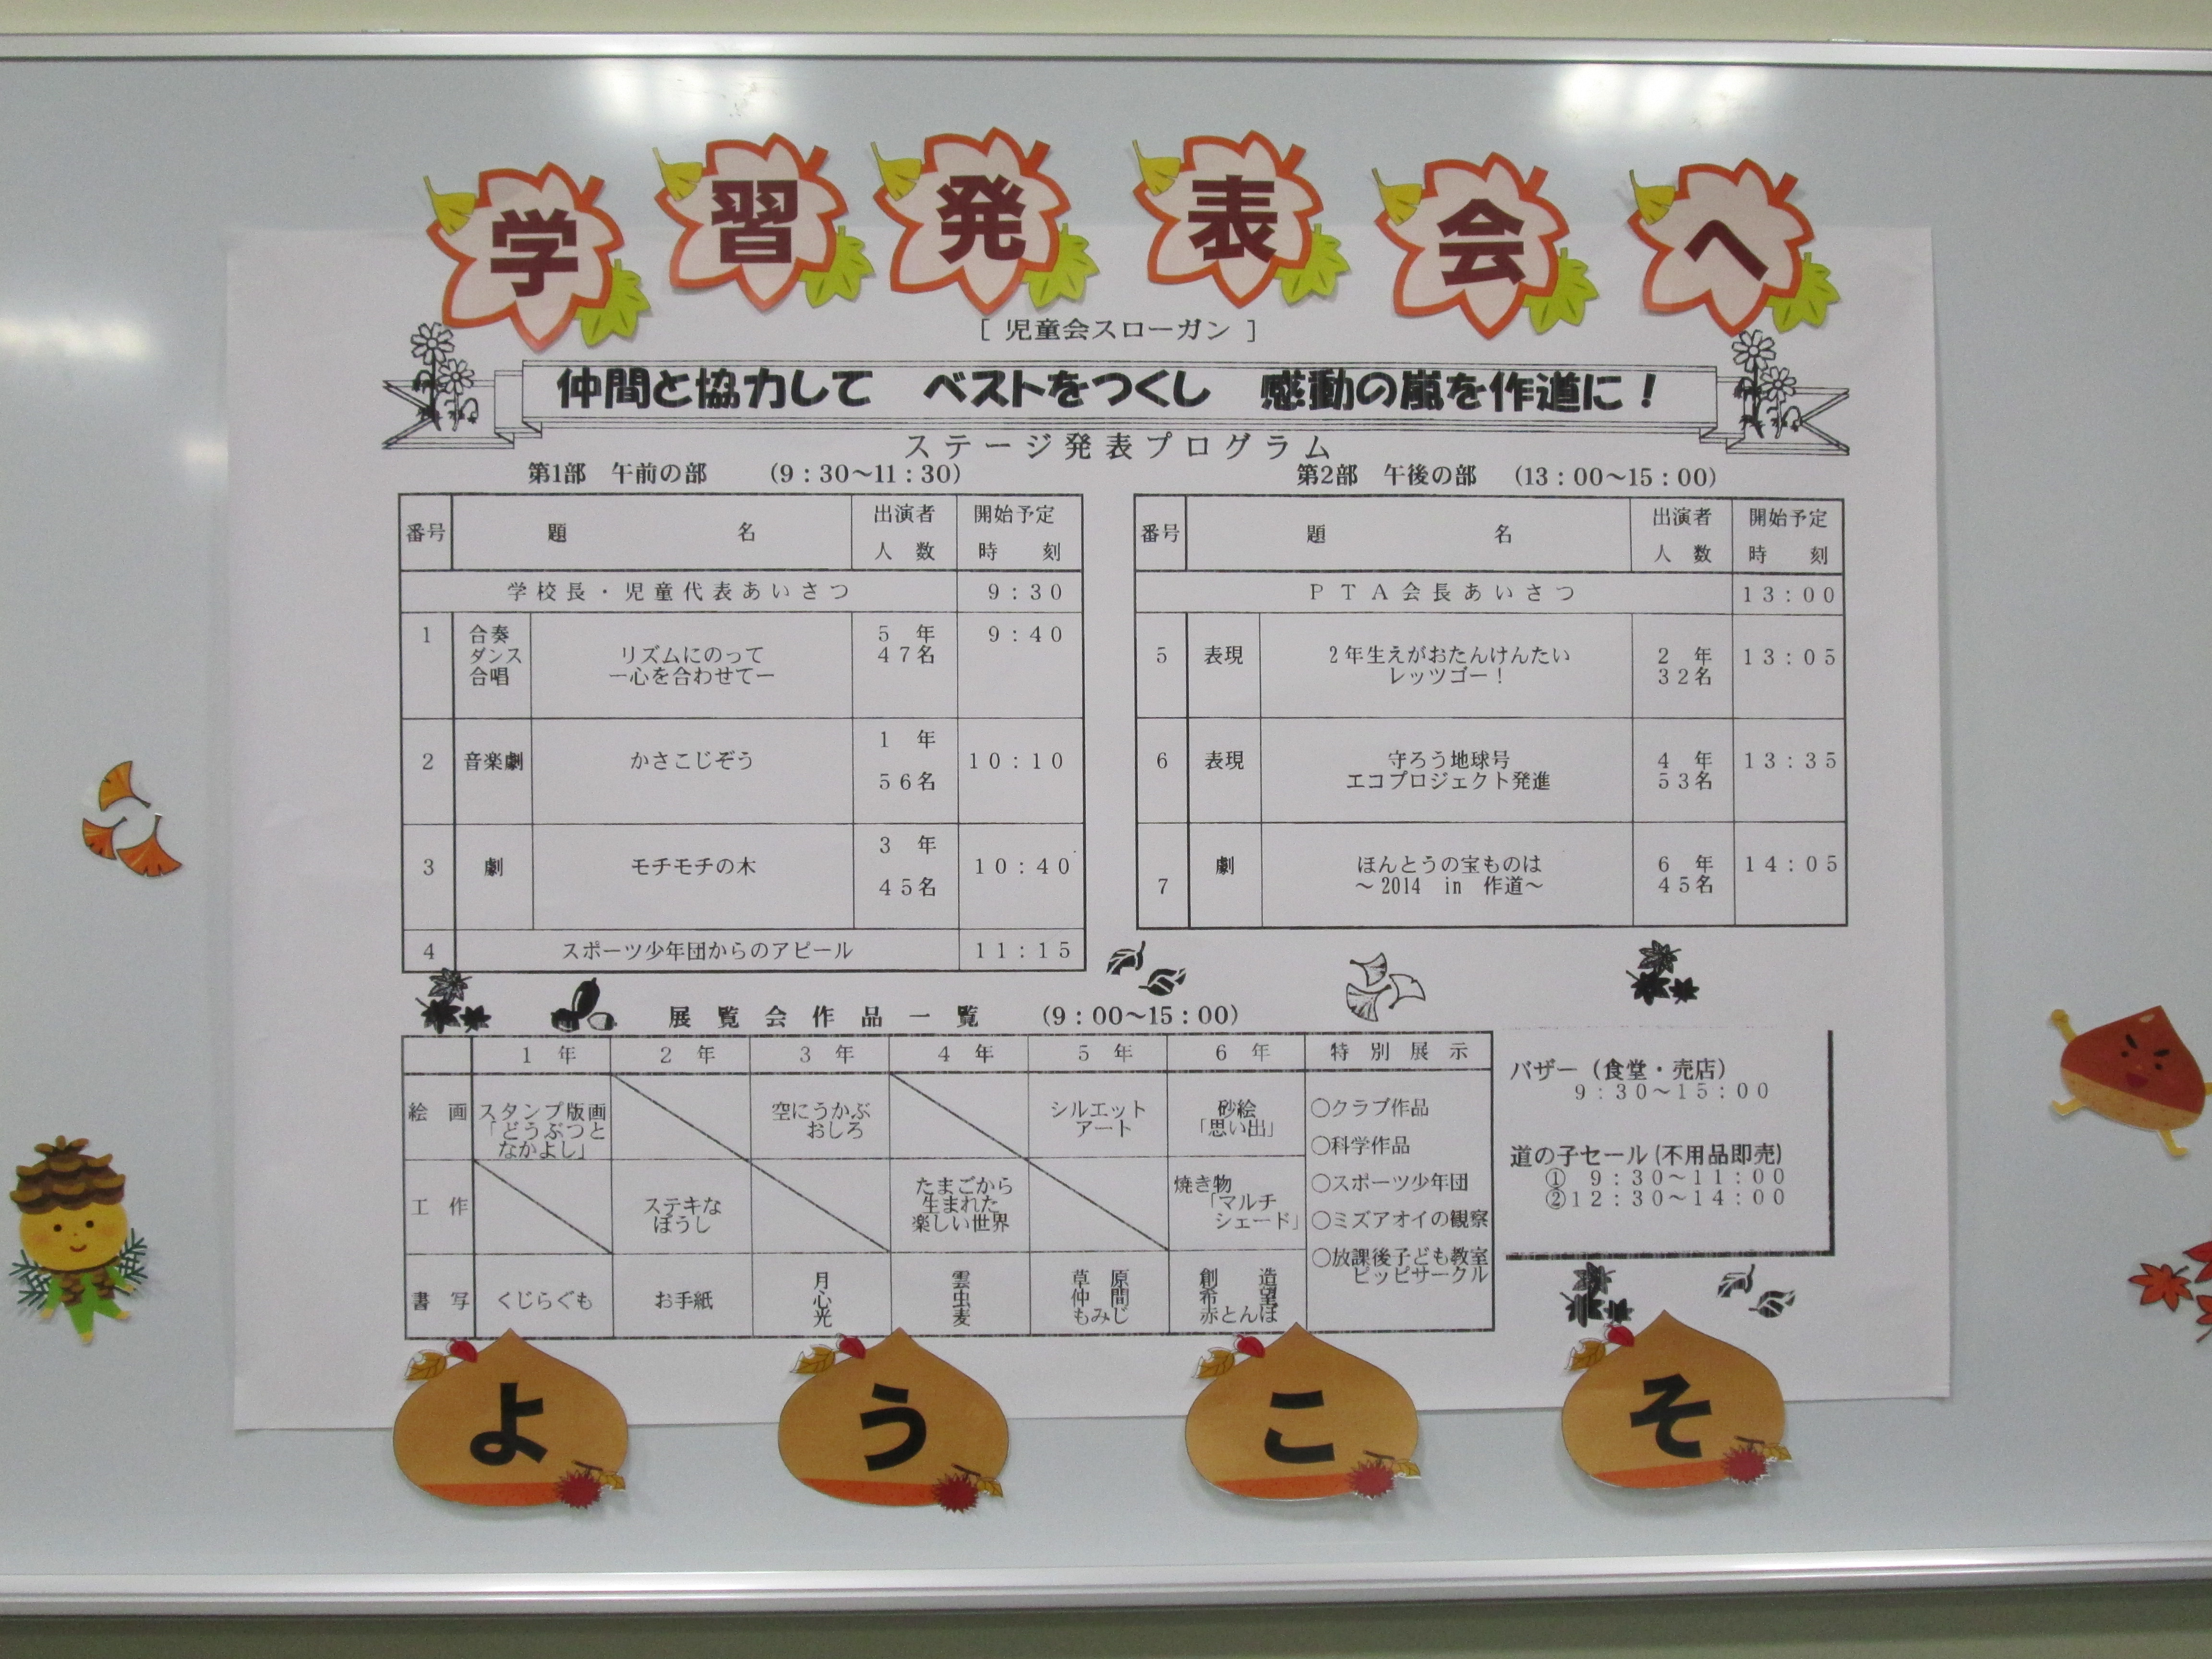 学習発表会へ
[ 児童会スローガン ]
仲間と協力して　ベストをつくし　感動の嵐を作道に！
ステージ発表プログラム
第1部　午前の部　（9：30～11：30）
番号　題　名　出演者人　数　開始予定時　刻
学校長・児童代表あいさつ　9：30
1　合奏　5　年　9：40
ダンス　リズムにのって　47名
合唱　ー心を合わせてー
1　年
2　音楽劇　かさこじぞう　10：10
56名
3　年
3　劇　モチモチの木　10：40
45名
4　スポーツ少年団からのアピール　11：15
第2部　午後の部　（13：00～15：00）
番号　題　名　出演者人　数　開始予定時　刻
PTA会長あいさつ　13：00
5　表現　2年生えがおたんけんたい　2　年　13：05
レッツゴー！　32名
6　表現　守ろう地球号　4　年　13：35
エコプロジェクト発進　53名
劇　ほんとうの宝ものは　6　年　14：05
7　～2014　in　作道～　45名
展覧会作品一覧　（9：00～15：00）
1　年　2　年　3　年　4　年　5　年　6　年　特別展示
絵　画
スタンプ版画
「どうぶつと
なかよし」
空にうかぶ
おしろ
シルエット
アート
砂絵
「思い出」
工　作
ステキな
ぼうし
たまごから
生まれた
楽しい世界
焼き物
「マルチ
シェード」
書　写
くじらぐも
お手紙
月
心
光
雲
虫
麦
草　原
仲　間
もみじ
創　造
希　望
赤とんぼ
○クラブ作品
○科学作品
○スポーツ少年団
○ミズアオイの観察
○放課後子ども教室
ピッピサークル
バザー（食堂・売店）
9：30～15：00
道の子セール(不用品即売)
①　9：30～11：00
②12：30～14：00
ようこそ